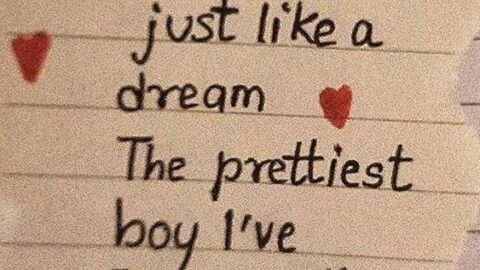 just like a
dream
The prettiest
boy I've